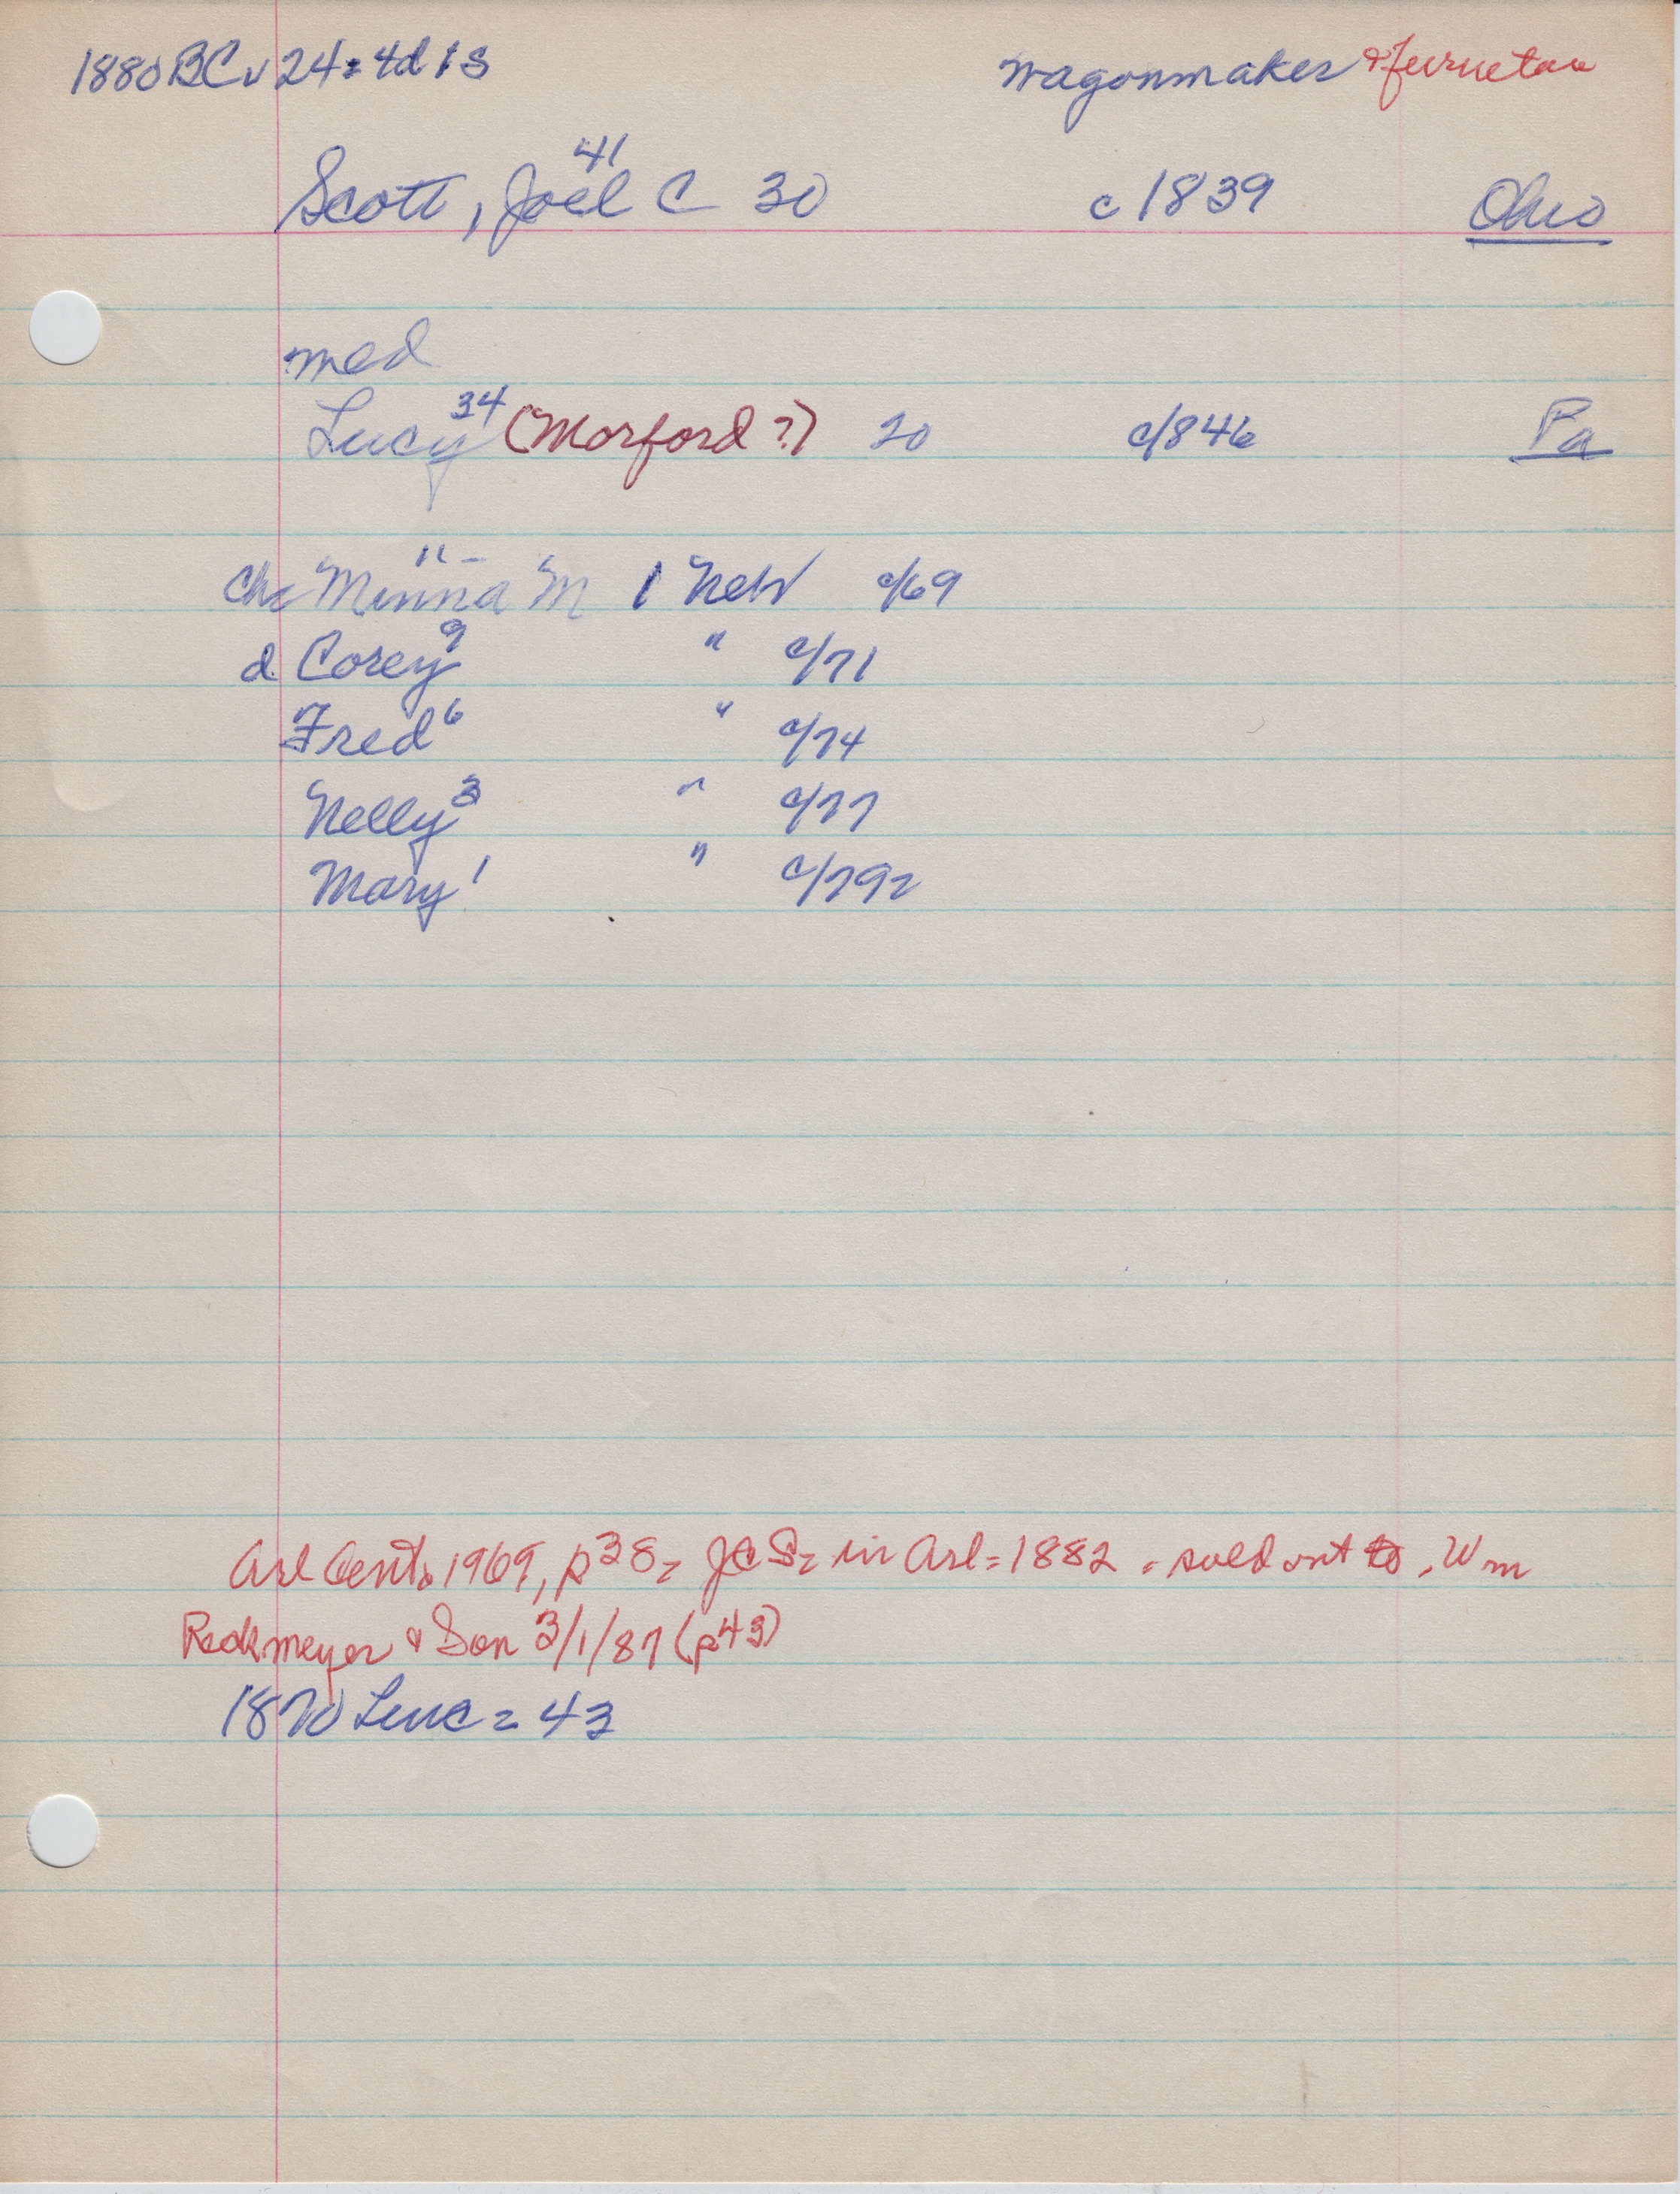 1880 BCv 24 = 4d 1s wagonmaker & furneture
Scott, Joel C 41 30 c 1839 Ohio
med
Lucy 34 (Morford ?) 20 c/846 Pa
Ch = Minna M 11 - 1 Neb c/69
d Corey 9 " c/71
Fred 6 " c/74
Nelly 3 " c/77
Mary 1 " c/792
Arl Cent. 1969, p38 = JCS = in Arl = 1882 - sold out to . Wm
Reckmeyer & Son 3/1/87 (p43)
1870 Linc = 43